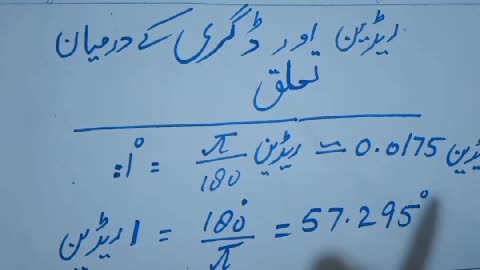 ریڈین اور ڈگری کے درمیان
تعلق
:1° = π/180 ریڈین ≈ 0.0175 ریڈین
1 ریڈین = 180°/π = 57.295°